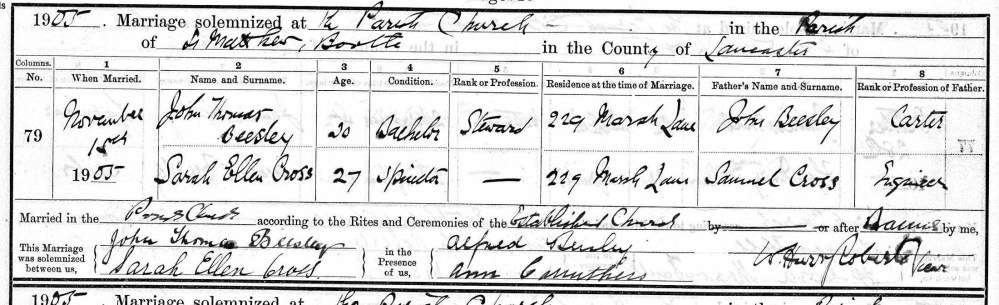 1905. Marriage solemnized at the Parish Church in the Parish
of St Matthew, Bootle in the County of Lancaster
Columns. 1 2 3 4 5 6 7 8
No. When Married. Name and Surname. Age. Condition. Rank or Profession. Residence at the time of Marriage. Father's Name and Surname. Rank or Profession of Father.
79 November John Thomas Beesley 20 Bachelor Steward 229 Marsh Lane John Beesley Carter
1905 Sarah Ellen Cross 27 Spinster — 229 Marsh Lane Samuel Cross Engineer
Married in the Parish Church according to the Rites and Ceremonies of the Established Church by — or after Banns by me,
This Marriage was solemnized between us, John Thomas Beesley in the Presence of us, Alfred Beesley W. Harry Roberts Vicar
Sarah Ellen Cross Ann Carruthers
1905. Marriage solemnized at the Parish Church in the Parish